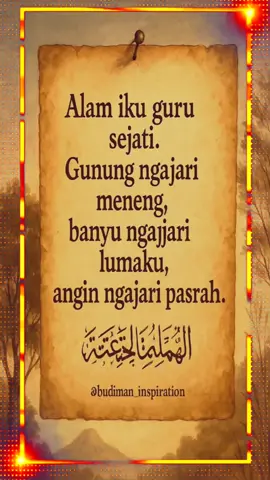 Alam iku guru
sejati.
Gunung ngajari
meneng,
banyu ngajjari
lumaku,
angin ngajari pasrah.
@budiman_inspiration